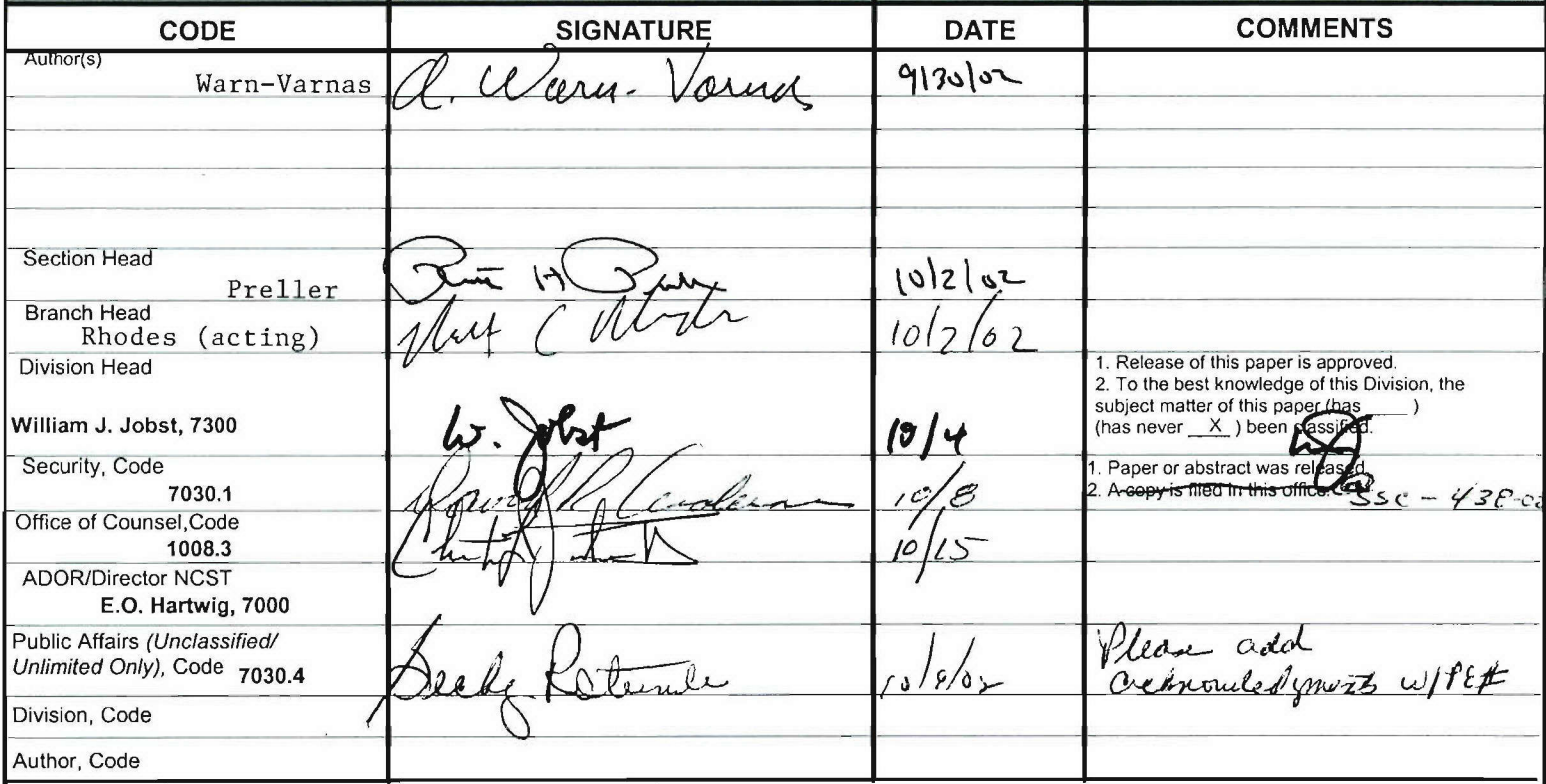 CODE SIGNATURE DATE COMMENTS
Author(s)
Warn-Varnas A. Warn-Varnas 9/30/02
Section Head
Preller 10/2/02
Branch Head
Rhodes (acting) 10/2/02
Division Head
1. Release of this paper is approved.
2. To the best knowledge of this Division, the
subject matter of this paper (has ____ )
(has never X ) been classified.
William J. Jobst, 7300 W. Jobst 10/4
Security, Code
7030.1 10/8
1. Paper or abstract was released.
2. A copy is filed in this office.
Office of Counsel,Code
1008.3 10/15
ADOR/Director NCST
E.O. Hartwig, 7000
Public Affairs (Unclassified/
Unlimited Only), Code 7030.4
Please add
acknowledgments w/PE#
Division, Code
Author, Code